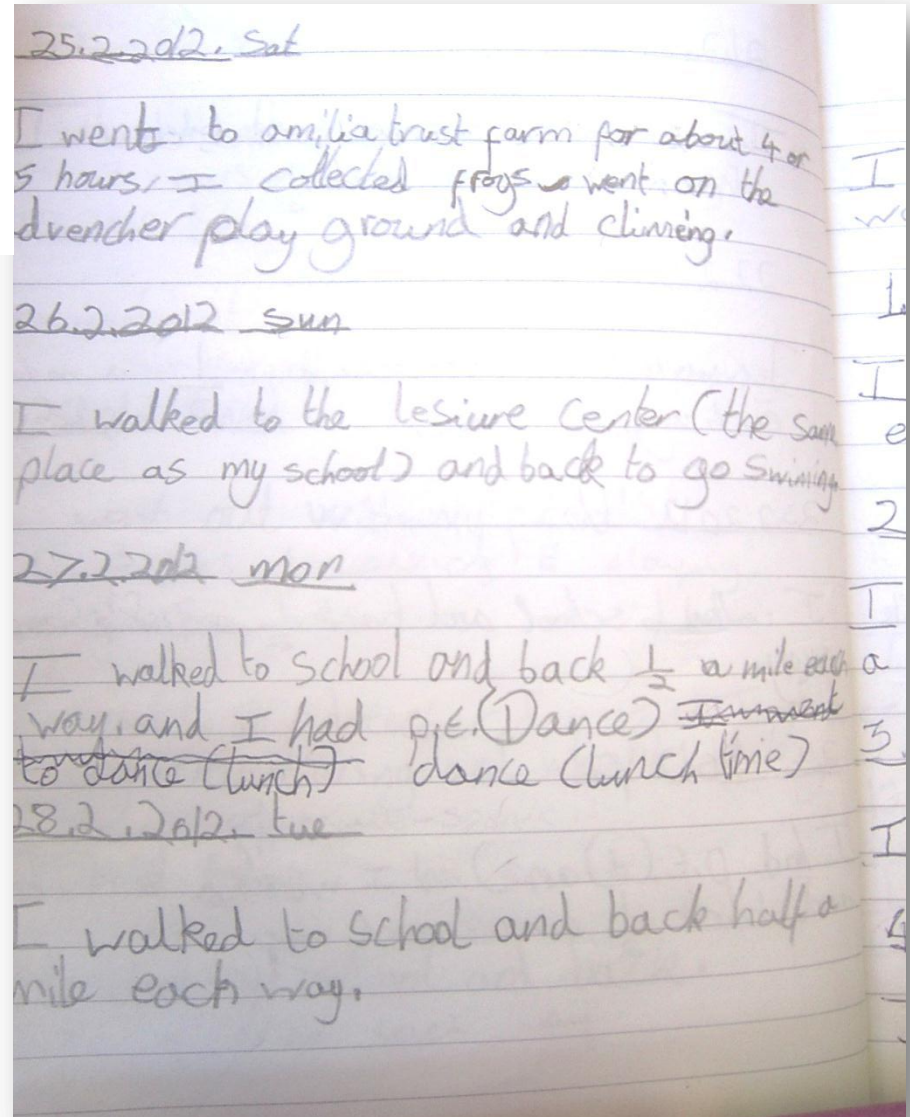 25.2.2012. Sat
I went to amilia trust farm for about 4 or
5 hours, I collected frogs went on the
drencher play ground and climing.
26.2.2012 sun
I walked to the lesiure center (the same
place as my school) and back to go swiming
27.2.2012 mon
I walked to school and back 1/2 a mile each
way. and I had p.E.(Dance) I went
to dance (lunch) dance (lunch time)
28.2.2012. tue
I walked to school and back half a
mile each way.